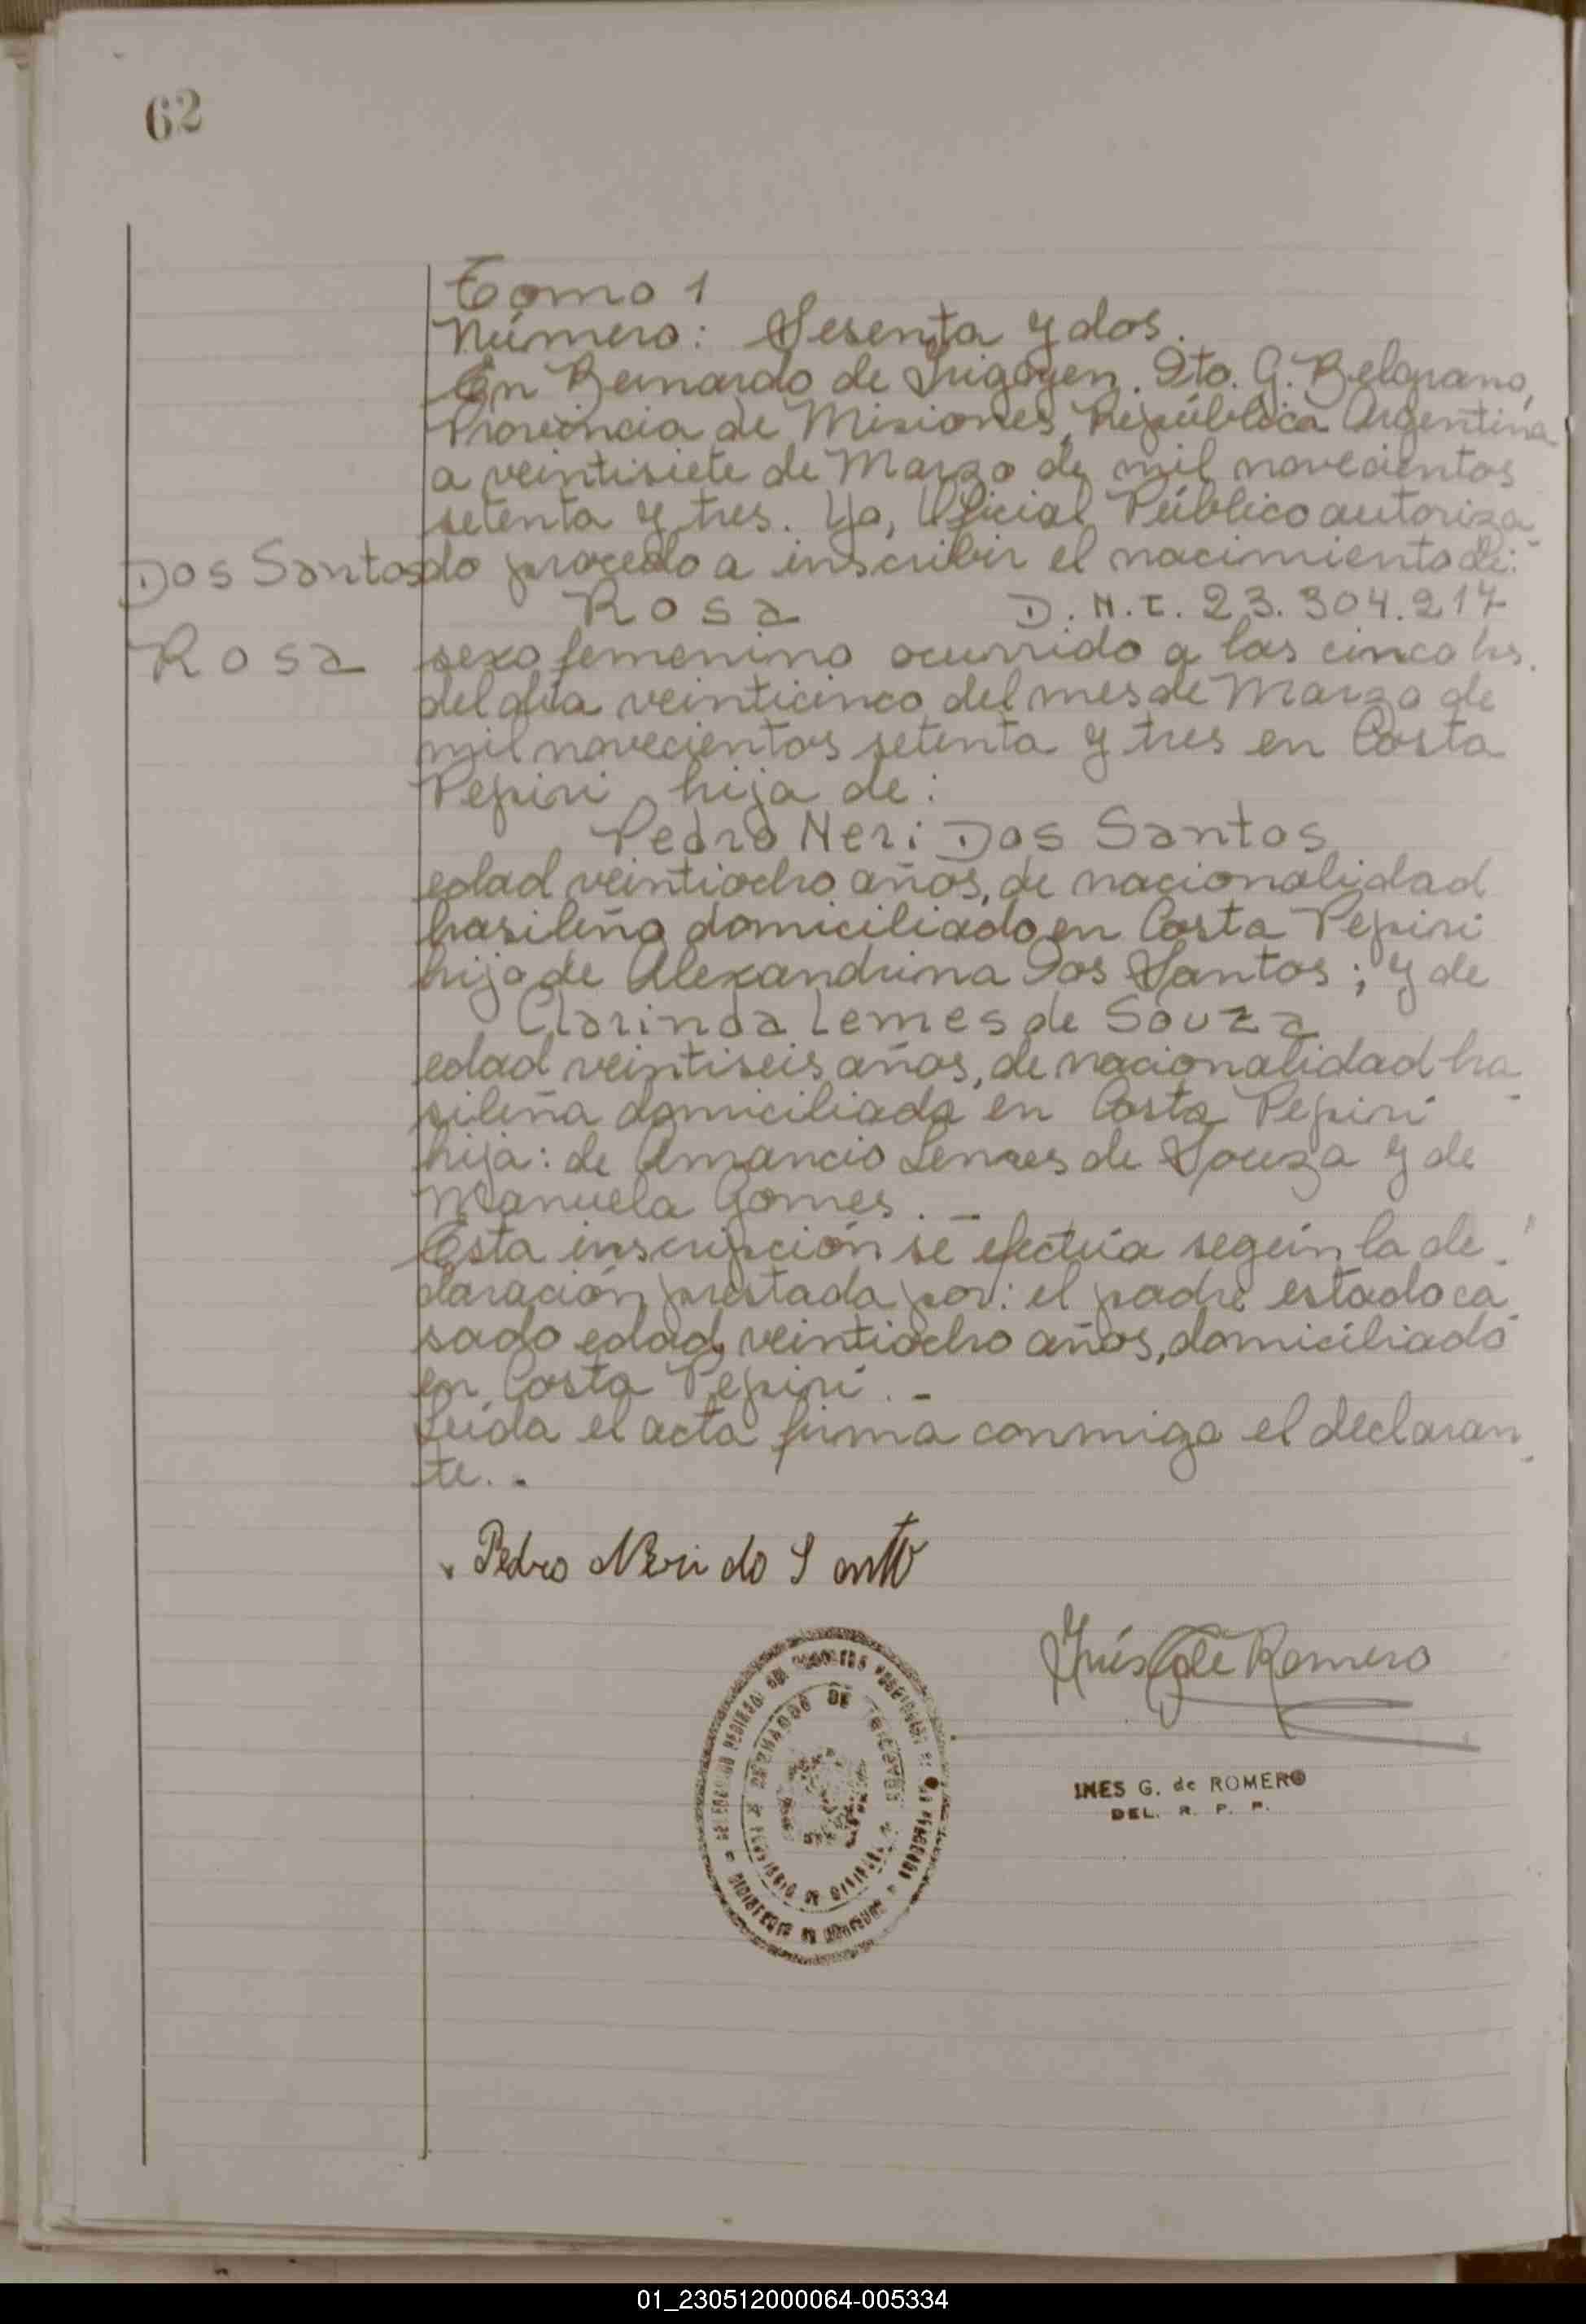 62
Tomo 1
Número: Sesenta y dos.
En Bernardo de Irigoyen. Dto. G. Belgrano,
Provincia de Misiones, República Argentina
a veintisiete de Marzo de mil novecientos
setenta y tres. Yo, Oficial Público autoriza-
Dos Santos do procedo a inscribir el nacimiento de:
Rosa D.N.I. 23.304.217
Rosa sexo femenino ocurrido a las cinco hs.
del día veinticinco del mes de Marzo de
mil novecientos setenta y tres en Costa
Pepiri, hija de:
Pedro Neri Dos Santos
edad veintiocho años, de nacionalidad
brasileña domiciliado en Costa Pepiri
hijo de Alexandrina Dos Santos; y de
Clarinda Lemes de Souza
edad veintiseis años, de nacionalidad bra-
sileña domiciliada en Costa Pepiri
hija: de Amancio Lemes de Souza y de
Manuela Gomes. -
Esta inscripción se efectúa según la de-
claración prestada por: el padre estado ca-
sado edad veintiocho años, domiciliado
en Costa Pepiri. -
Leída el acta firma conmigo el declaran-
te. -
Pedro Neri do Santo
Inés G de Romero
INES G. de ROMERO
DEL. R. P. P.
BERNARDO DE IRIGOYEN
01_230512000064-005334